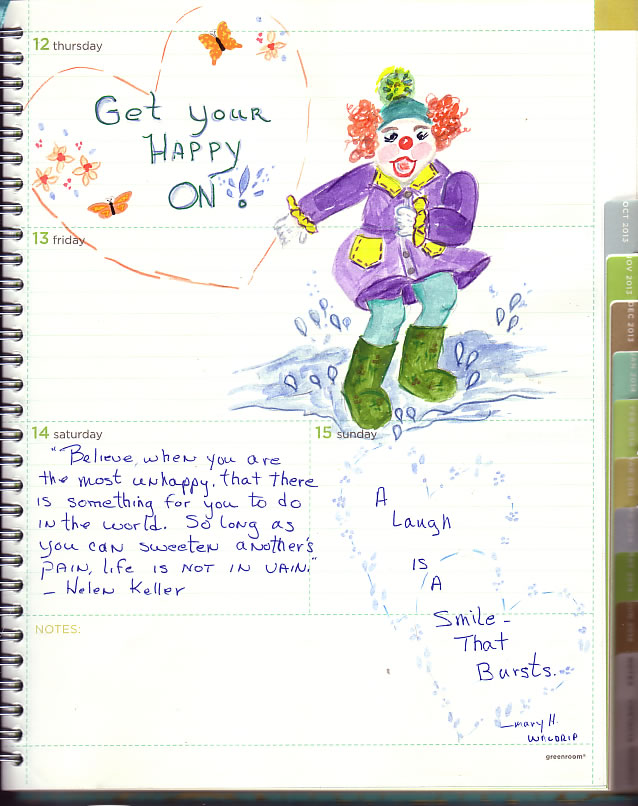 12 thursday
Get your
HAPPY
ON!
13 friday
14 saturday
"Believe, when you are
the most unhappy, that there
is something for you to do
in the world. So long as
you can sweeten another's
pain, life is not in vain."
- Helen Keller
15 sunday
A
Laugh
is
A
Smile -
That
Bursts.
- Mary H.
Waldrip
NOTES:
greenroom®
OCT 2013
NOV 2013
DEC 2013